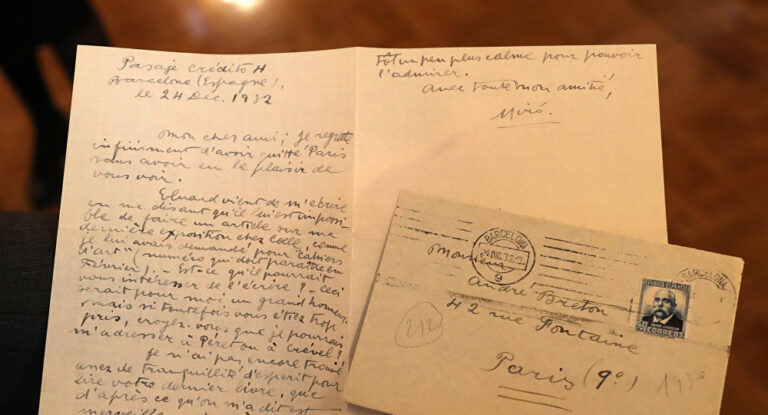 Pasaje Crédito 4
Barcelone (Espagne),
le 24 Déc. 1932
Mon cher ami; je regrette
infiniment d'avoir quitté Paris
sans avoir eu le plaisir de
vous voir.
Eluard vient de m'écrire
en me disant qu'il lui est impossi-
ble de faire un article sur ma
dernière exposition chez Colle, comme
je lui avais demandé pour "Cahiers
d'art" (numéro qui doit paraître en
Février). - Est-ce qu'il pourrait
vous intéresser de l'écrire? - Ceci
serait pour moi un grand honneur.
mais si toutefois vous étiez trop
pris, croyez-vous que je pourrais
m'adresser à Péret ou à Crevel?
Je n'ai pas encore trouvé
assez de tranquillité d'esprit pour
lire votre dernier livre, que
d'après ce qu'on m'a dit est
merveil
tôt un peu plus calme pour pouvoir
l'admirer.
Avec toute mon amitié,
Miró.
BARCELONA
9
Monsieur
André Breton
42 rue Fontaine
Paris (9e)
212
193
REPUBLICA ESPAÑOLA
CORREOS
BARCELONA